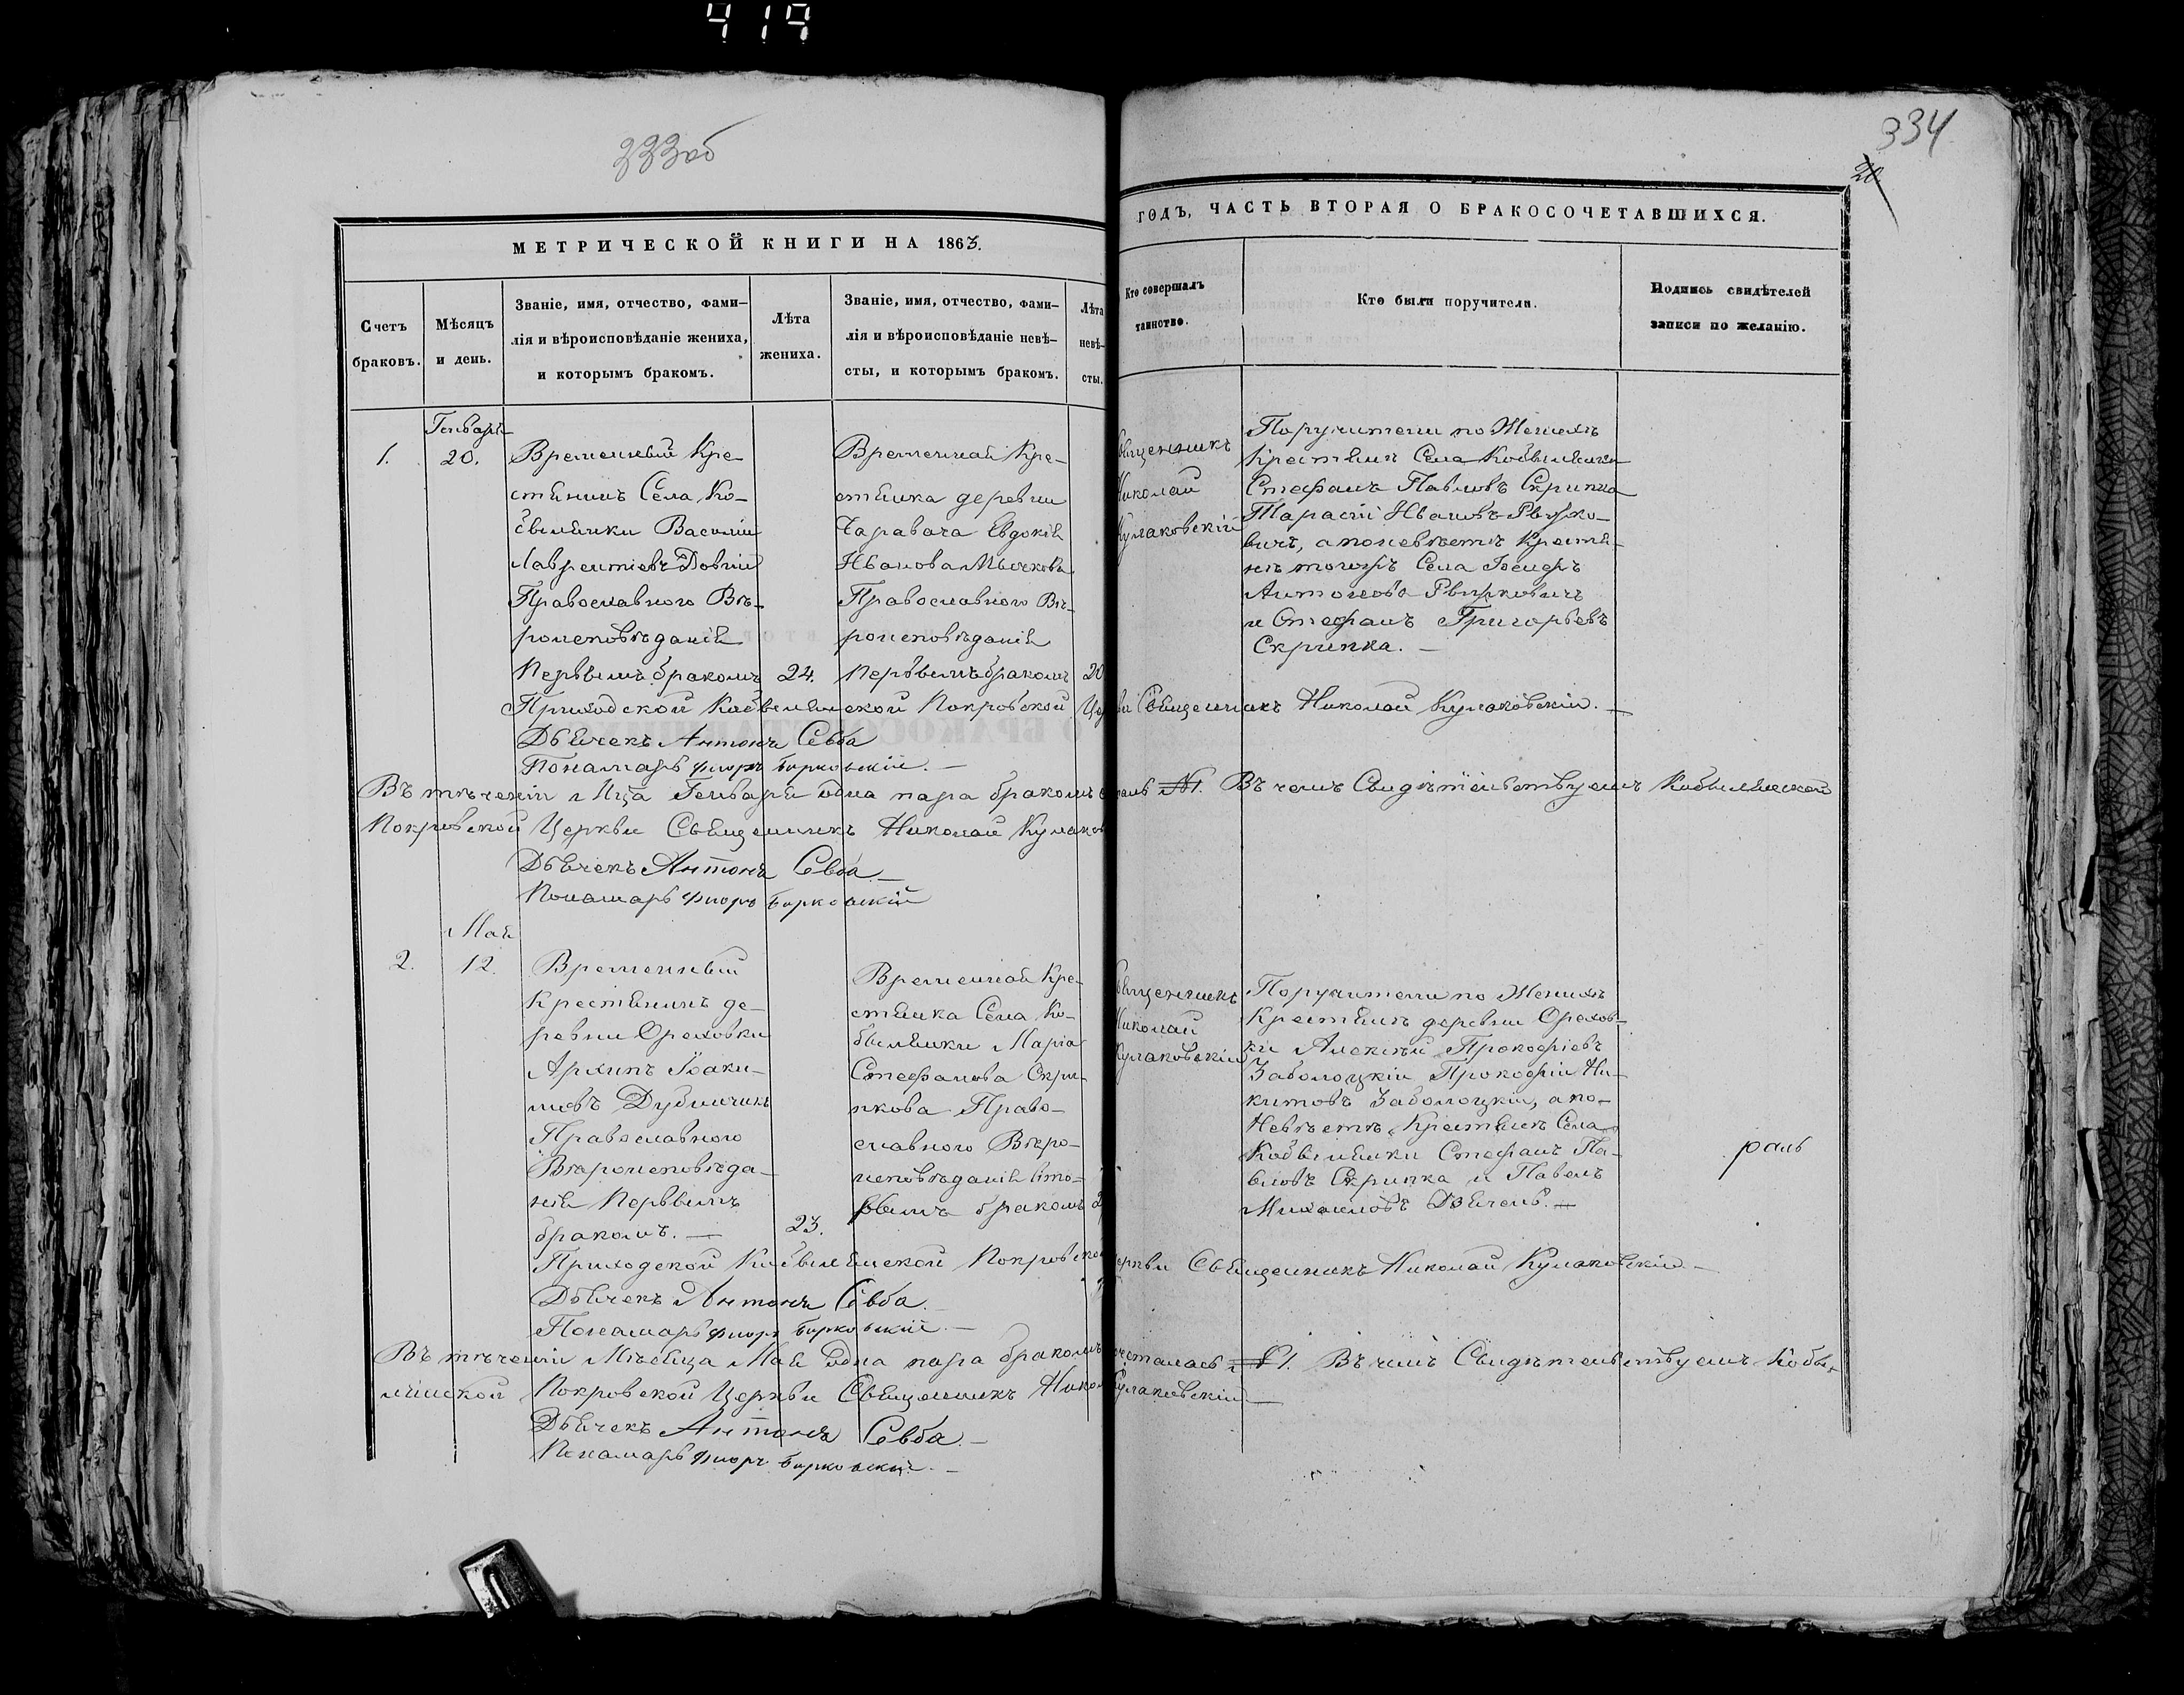 419
333об
334
20
МЕТРИЧЕСКОЙ КНИГИ НА 1863.
ГОДЪ, ЧАСТЬ ВТОРАЯ О БРАКОСОЧЕТАВШИХСЯ.
Счетъ
браковъ.
Мѣсяцъ
и день.
Званіе, имя, отчество, фами-
лія и вѣроисповѣданіе жениха,
и которымъ бракомъ.
Лѣта
жениха.
Званіе, имя, отчество, фами-
лія и вѣроисповѣданіе невѣ-
сты, и которымъ бракомъ.
Лѣта
невѣ-
сты.
Кто совершалъ
таинство.
Кто были поручители.
Подпись свидѣтелей
записи по желанію.
1.
Генварь
20.
Временный Кре-
стянинъ Села Ко-
былянки Василій
Лаврентіевъ Довгій
Православного Вѣ-
роисповѣданія
Первымъ бракомъ
24.
Временная Кре-
стянка деревни
Чаравача Евдокія
Иванова
Православного Вѣ-
роисповѣданія
Первымъ бракомъ
20
Священникъ
Николай
Кулаковскій
Поручители по Женихѣ
Крестяне Села Кобылянки
Стефанъ Павловъ Скрипка
Тарасій Ивановъ
а по невѣстѣ Крестя-
не тогожъ Села
Антонова
и Стефанъ Григорьевъ
Скрипка. —
Приходской Кобылянской Покровской Церкви Священникъ Николай Кулаковскій. —
Дьячекъ Антонъ Севба
Понамарь Флоръ Бирковскій. —
Въ теченіи Мца Генваря одна пара бракомъ №1. Въ чемъ Свидѣтельствуемъ Кобылянской
Покровской Церкви Священникъ Николай
Дьячекъ Антонъ Севба —
Понамарь Флоръ Бирковскій
2.
Мая
12.
Временный
Крестянинъ де-
ревни Ореховки
Архипъ Іоаки-
мовъ Дубинчикъ
Православного
Вѣроисповѣда-
нія Первымъ
бракомъ. —
23.
Временная Кре-
стянка Села Ко-
былянки Марія
Стефанова Скри-
пкова Право-
славного Вѣро-
исповѣданія вто-
рымъ бракомъ
Священникъ
Николай
Кулаковскій
Поручители по Женихѣ
Крестяне деревни Орехов-
ки Алексѣй Прокофіевъ
Заболоцкій Прокофій Ни-
китовъ Заболоцкій, а по-
Невѣстѣ Крестяне Села
Кобылянки Стефанъ Па-
вловъ Скрипка и Павелъ
Михаиловъ —
раль
Приходской Кобылянской Покровской Церкви Священникъ Николай Кулаковскій —
Дьячекъ Антонъ Севба. —
Понамарь Флоръ Бирковскій —
Въ теченіи Мѣсяца Мая одна пара бракомъ сочеталась №1. Въ чемъ Свидѣтельствуемъ Кобы-
лянской Покровской Церкви Священникъ Николай Кулаковскій —
Дьячекъ Антонъ Севба. —
Понамарь Флоръ Бирковскій. —